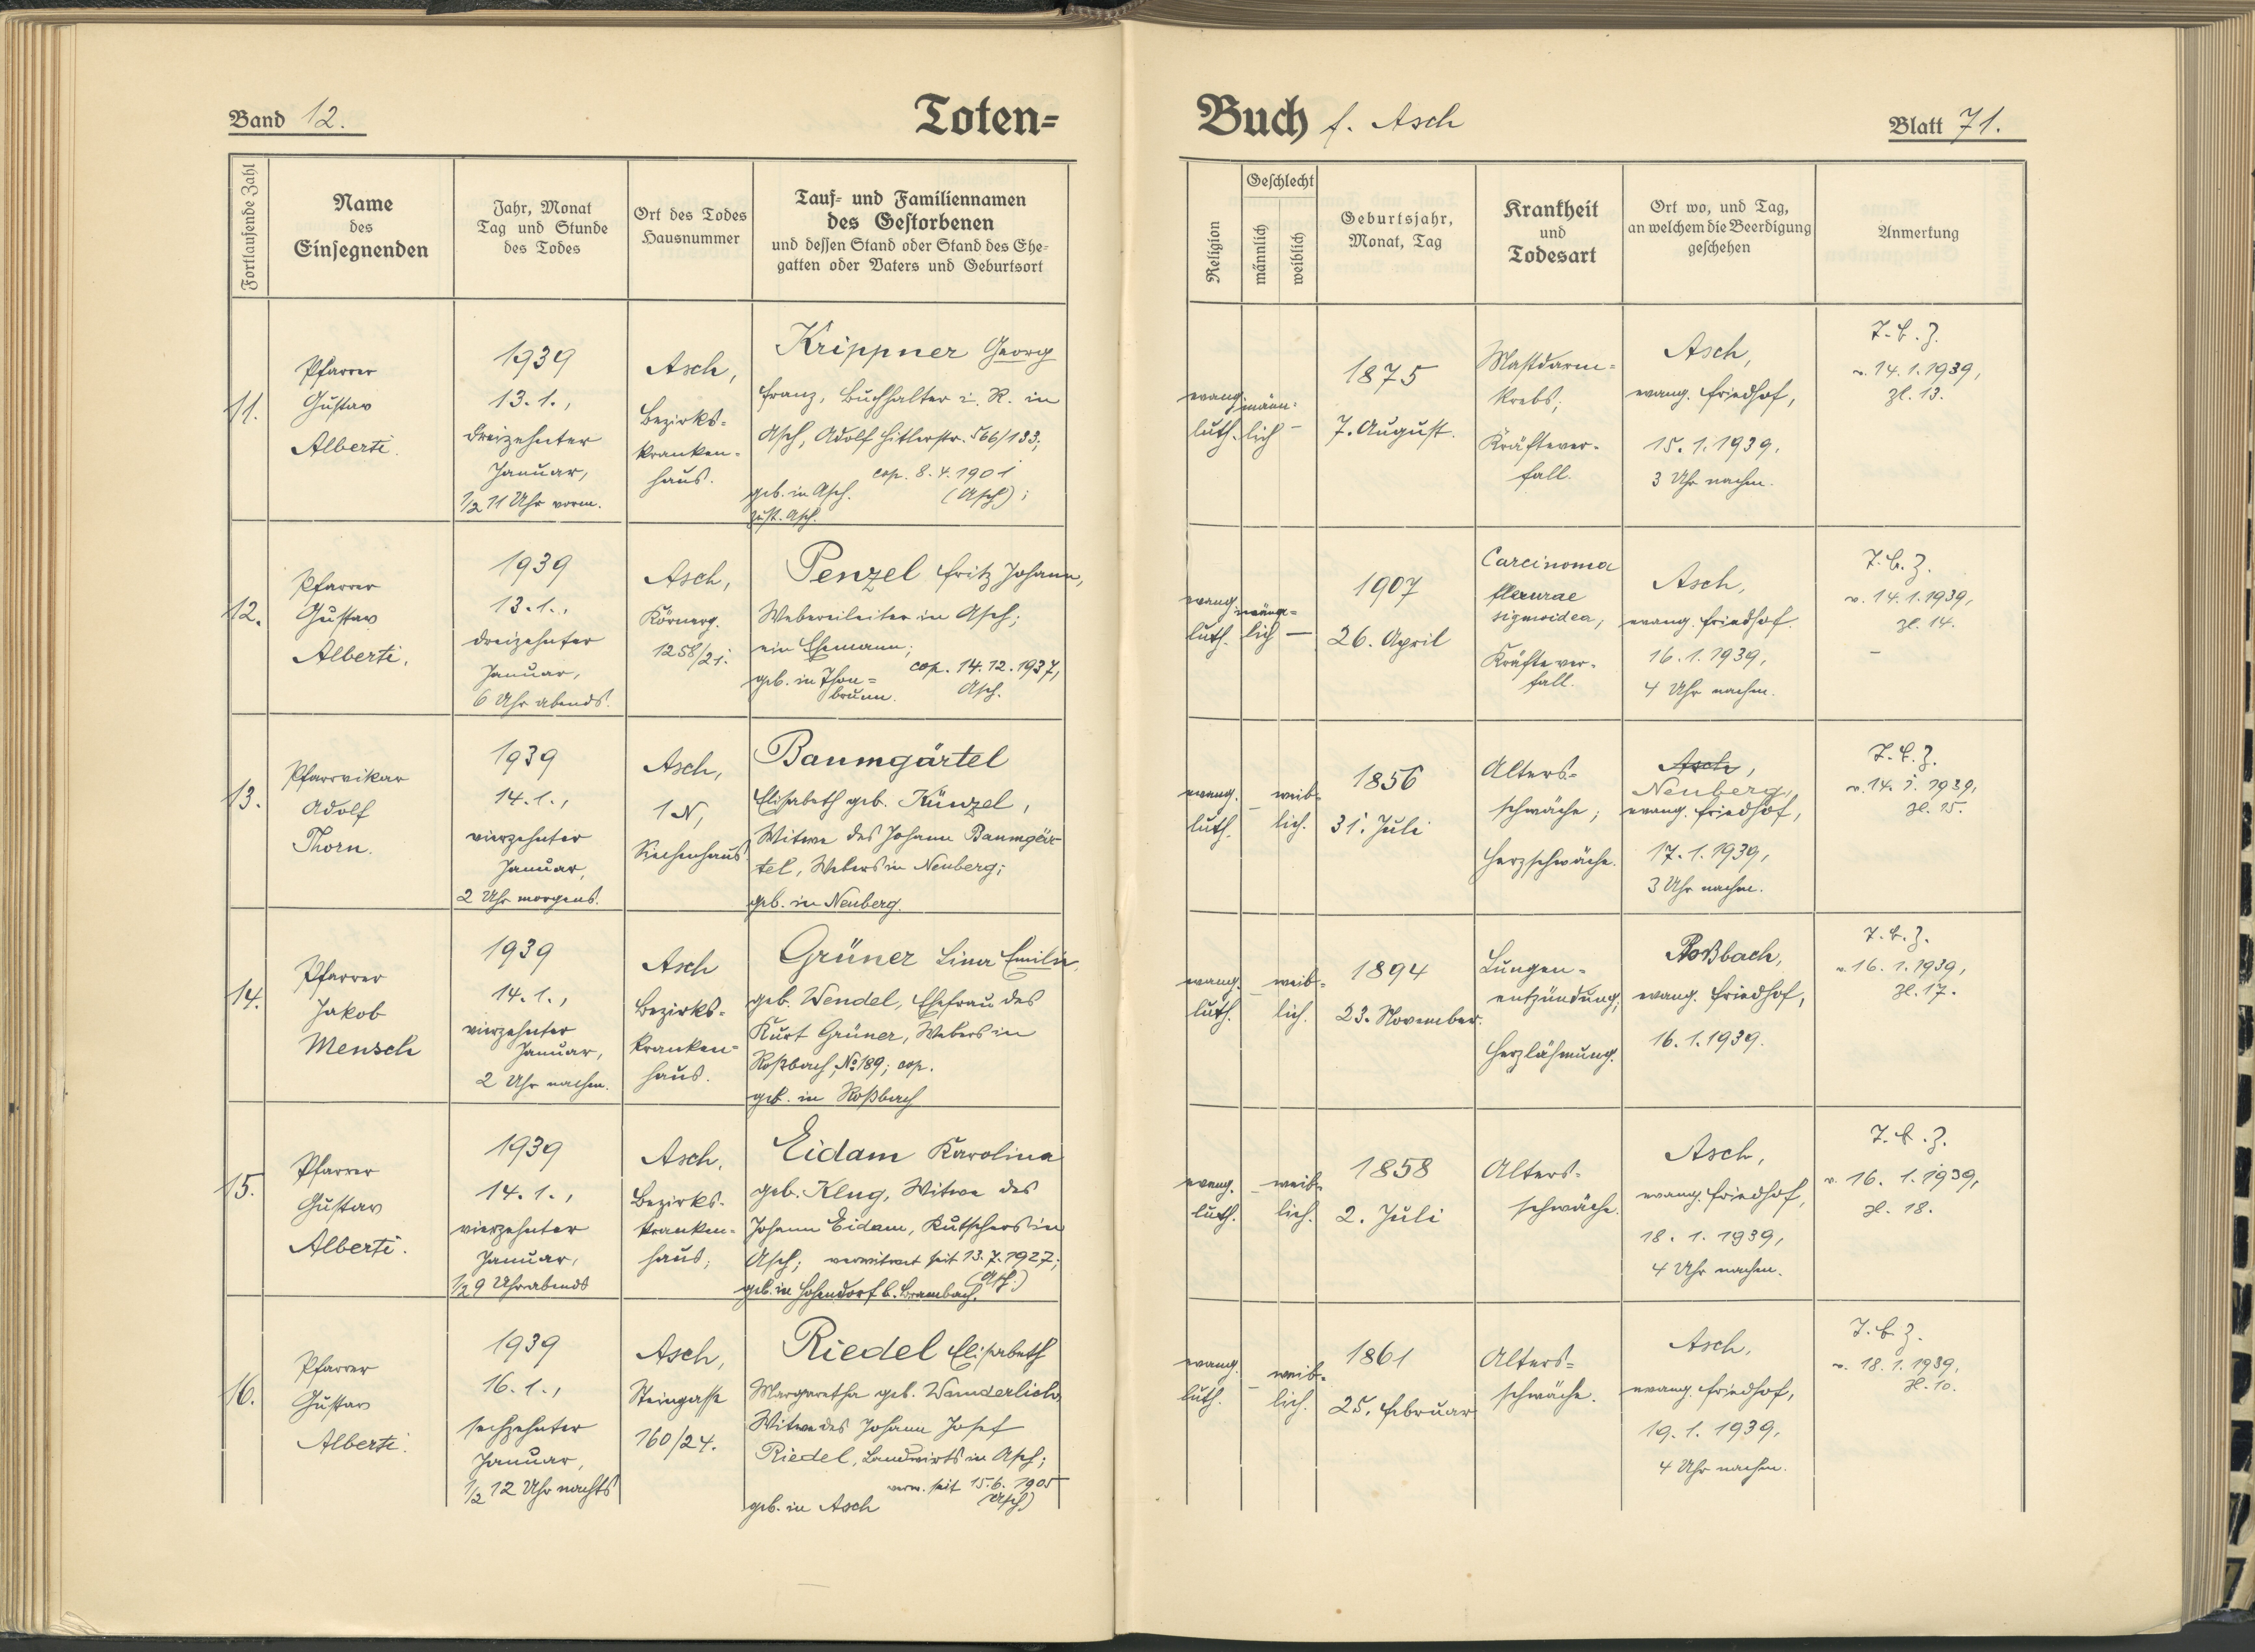 Band 12.
Toten=
Buch f. Asch
Blatt 71.
Fortlaufende Zahl
Name
des
Einsegnenden
Jahr, Monat
Tag und Stunde
des Todes
Ort des Todes
Hausnummer
Tauf- und Familiennamen
des Gestorbenen
und dessen Stand oder Stand des Ehe-
gatten oder Vaters und Geburtsort
Religion
Geschlecht
männlich
weiblich
Geburtsjahr,
Monat, Tag
Krankheit
und
Todesart
Ort wo, und Tag,
an welchem die Beerdigung
geschehen
Anmerkung
11.
Pfarrer
Gustav
Alberti.
1939
13.1.,
dreizehnter
Januar,
1/2 11 Uhr vorm.
Asch,
Bezirks-
kranken-
haus.
Krippner Georg
Franz, Buchhalter i. R. in
Asch, Adolf Hitlerstr. 566/133;
cop. 8.4.1901
geb. in Asch. (Asch);
zust. Asch.
evang.
luth.
männ-
lich –
1875
7. August.
Mastdarm-
krebs;
Kräftever-
fall.
Asch,
evang. Friedhof,
15.1.1939,
3 Uhr nachm.
T.b.Z.
v. 14.1.1939,
Zl. 13.
12.
Pfarrer
Gustav
Alberti.
1939
13.1.,
dreizehnter
Januar,
6 Uhr abends.
Asch,
Körnerg.
1258/21.
Penzel Fritz Johann,
Webereileiter in Asch;
ein Ehemann;
cop. 14.12.1937,
geb. in Thon-
brunn. Asch.
evang.
luth.
männ-
lich –
1907
26. April
Carcinoma
flexurae
sigmoidea;
Kräftever-
fall.
Asch,
evang. Friedhof.
16.1.1939,
4 Uhr nachm.
T.b.Z.
v. 14.1.1939,
Zl. 14.
–
13.
Pfarrvikar
Adolf
Thorn.
1939
14.1.,
vierzehnter
Januar,
2 Uhr morgens.
Asch,
1 N,
Siechenhaus
Baumgärtel
Elisabeth geb. Künzel,
Witwe des Johann Baumgär-
tel, Webers in Neuberg;
geb. in Neuberg.
evang.
luth.
–
weib-
lich.
1856
31. Juli
Alters-
schwäche;
Herzschwäche.
Asch,
Neuberg,
evang. Friedhof,
17.1.1939,
3 Uhr nachm.
T.b.Z.
v. 14.1.1939,
Zl. 15.
14.
Pfarrer
Jakob
Mensch
1939
14.1.,
vierzehnter
Januar,
2 Uhr nachm.
Asch
Bezirks-
kranken-
haus.
Grüner Lina Emilie,
geb. Wendel, Ehefrau des
Kurt Grüner, Webers in
Roßbach, No 189; cop.
geb. in Roßbach
evang.
luth.
–
weib-
lich.
1894
23. November.
Lungen-
entzündung;
Herzlähmung.
Roßbach,
evang. Friedhof,
16.1.1939.
T.b.Z.
v. 16.1.1939,
Zl. 17.
15.
Pfarrer
Gustav
Alberti.
1939
14.1.,
vierzehnter
Januar,
1/2 9 Uhr abends
Asch,
Bezirks-
kranken-
haus;
Eidam Karolina
geb. Klug, Witwe des
Johann Eidam, Kutschers in
Asch; verwitwet seit 13.7.1927;
(Asch.)
geb. in Hohendorf b. Brambach.
evang.
luth.
–
weib-
lich.
1858
2. Juli
Alters-
schwäche.
Asch,
evang. Friedhof,
18.1.1939,
4 Uhr nachm.
T.b.Z.
v. 16.1.1939,
Zl. 18.
16.
Pfarrer
Gustav
Alberti.
1939
16.1.,
sechzehnter
Januar,
1/2 12 Uhr nachts
Asch,
Steingasse
160/24.
Riedel Elisabeth
Margaretha geb. Wunderlich,
Witwe des Johann Josef
Riedel, Landwirts in Asch;
verw. seit 15.6.1905
geb. in Asch (Asch)
evang.
luth.
–
weib-
lich.
1861
25. Februar
Alters-
schwäche.
Asch,
evang. Friedhof,
19.1.1939,
4 Uhr nachm.
T.b.Z.
v. 18.1.1939,
Zl. 10.